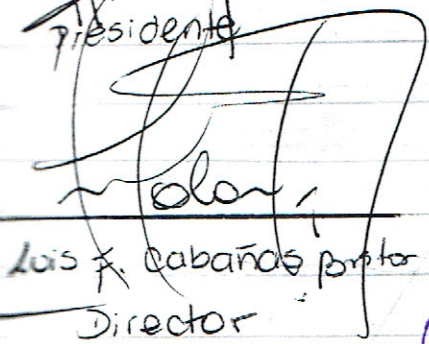 Presidente
Luis F. Cabañas
Director